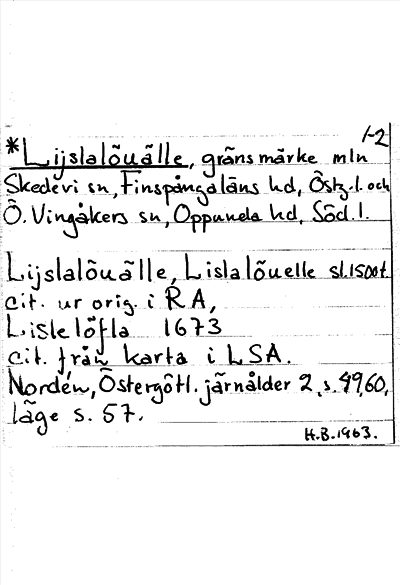 1-2
*Lijslalõuãlle, gränsmärke mln
Skedevi sn, Finspångaläns hd, Östg.l. och
Ö. Vingåkers sn, Oppunda hd, Söd.l.
Lijslalõuãlle, Lislalõuelle sl.1500t.
cit. ur orig. i RA,
Lislelöfla 1673
cit. från karta i LSA.
Nordén, Östergötl. järnålder 2, s. 49,60,
läge s. 57.
H.B.1963.